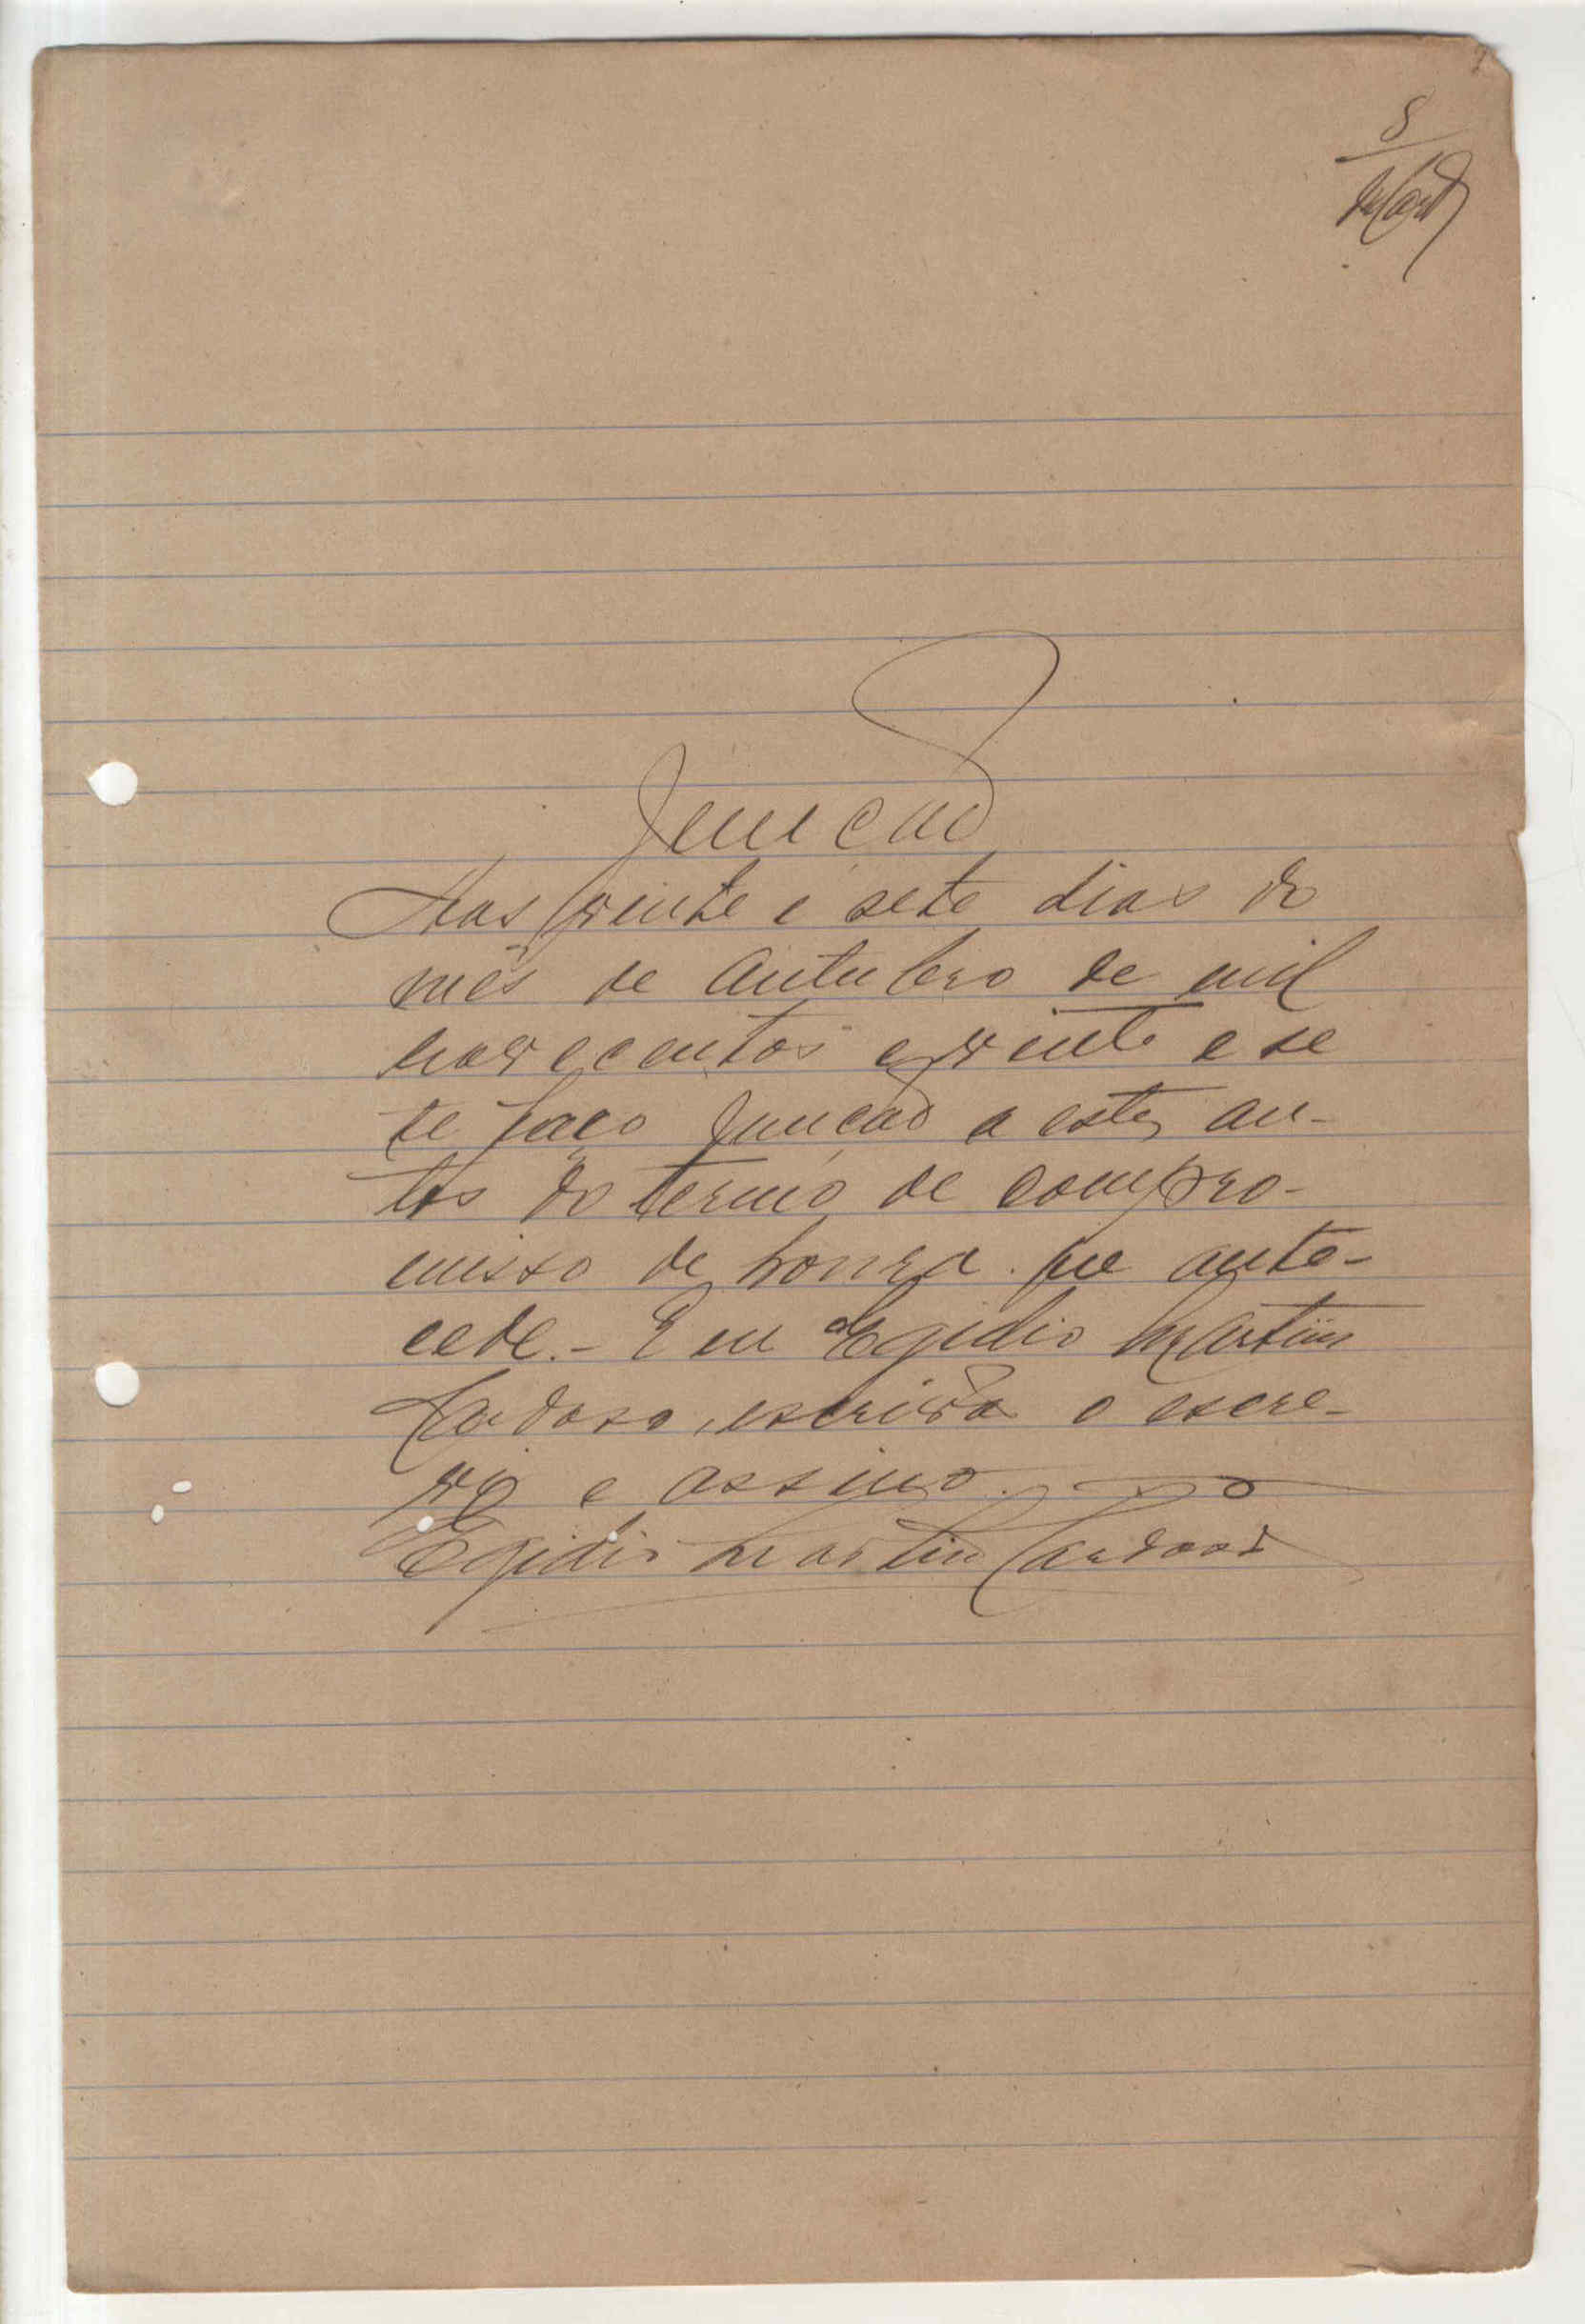 8
Junção
Aos vinte e sete dias do
mês de outubro de mil
novecentos e vinte e se
te faço junção a estes au-
tos do termo de compro-
misso de honra que ante-
cede. - E eu Egidio Martins
Cardoso, escrivão o escre-
vo e assino.
Egidio Martins Cardoso